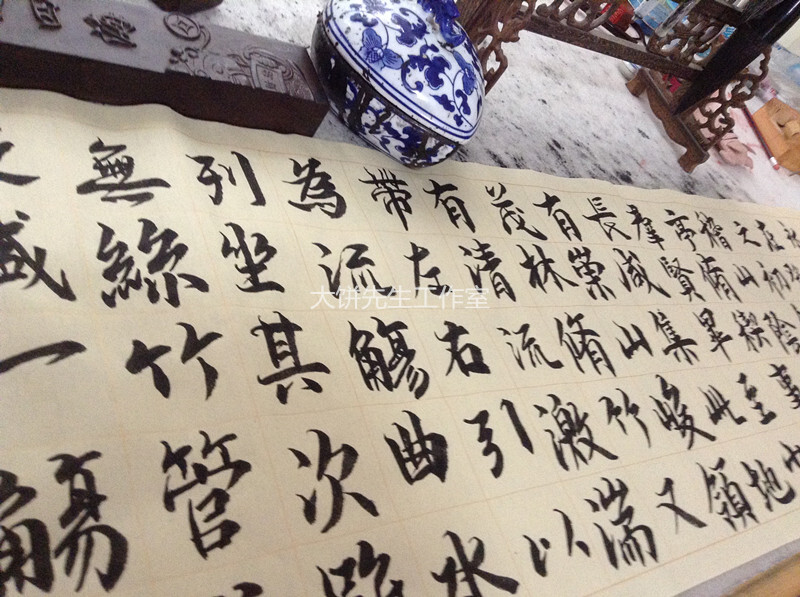 稽山陰
亭脩稧事
羣賢畢至
長咸集此地
有崇山峻領
茂林脩竹又
有清流激湍
帶左右引以
為流觴曲水
列坐其次
無絲竹管
盛一觴
大饼先生工作室